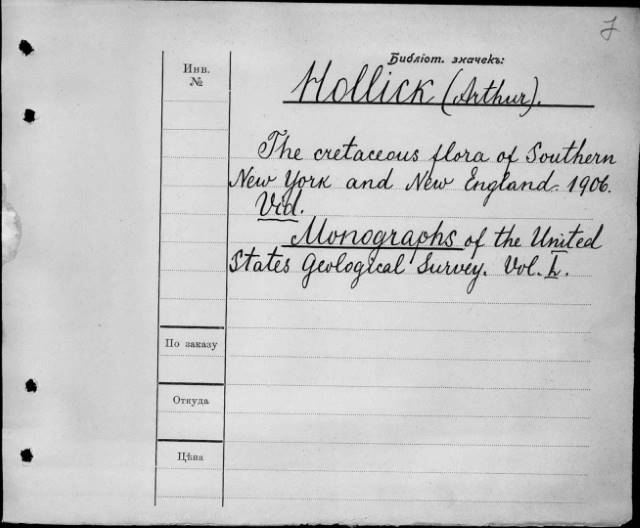 Библіот. значекъ:
Инв.
№
Hollick (Arthur).
The cretaceous flora of Southern
New York and New England. 1906.
Vid.
Monographs of the United
States Geological Survey. Vol. L.
По заказу
Откуда
Цѣна